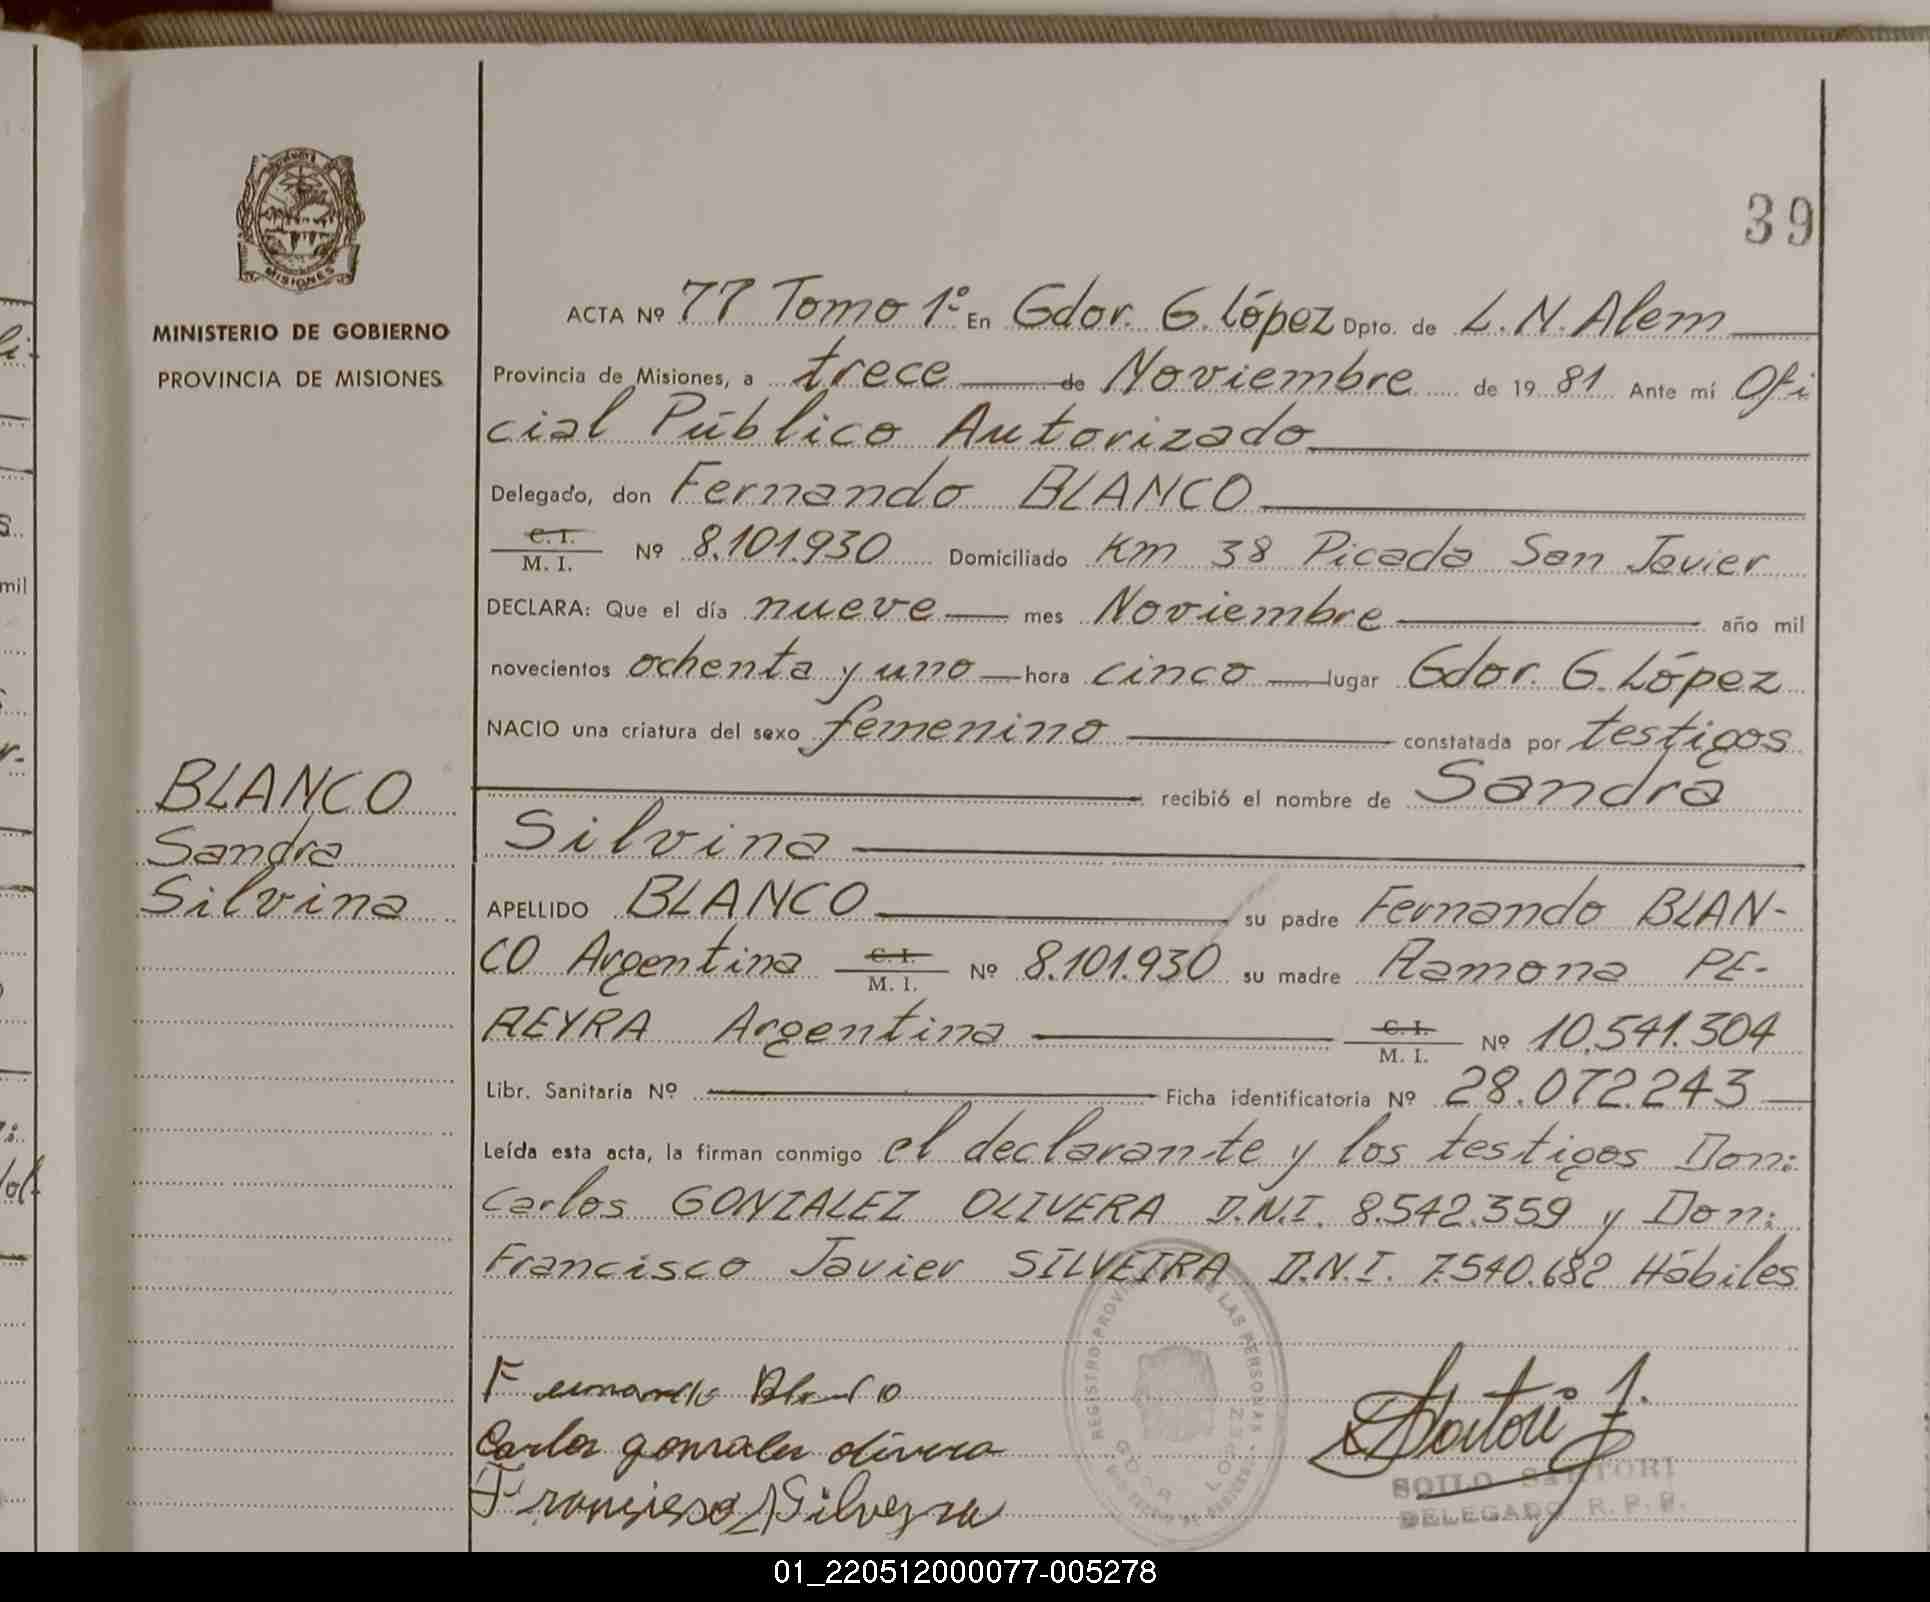 39
MISIONES
MINISTERIO DE GOBIERNO
PROVINCIA DE MISIONES
ACTA Nº 77 Tomo 1º En Gdor. G. López Dpto. de L. N. Alem
Provincia de Misiones, a trece de Noviembre de 1981 Ante mí Ofi
cial Público Autorizado
Delegado, don Fernando BLANCO
C. I.
M. I. Nº 8.101.930 Domiciliado Km 38 Picada San Javier
DECLARA: Que el día nueve mes Noviembre año mil
novecientos ochenta y uno hora cinco lugar Gdor. G. López
NACIO una criatura del sexo femenino constatada por testigos
recibió el nombre de Sandra
Silvina
BLANCO
Sandra
Silvina
APELLIDO BLANCO su padre Fernando BLAN-
CO Argentina C. I. M. I. Nº 8.101.930 su madre Ramona PE-
REYRA Argentina C. I. M. I. Nº 10.541.304
Libr. Sanitaria Nº Ficha identificatoria Nº 28.072.243
Leída esta acta, la firman conmigo el declarante y los testigos Don:
Carlos GONZALEZ OLIVERA D.N.I. 8.542.359 y Don:
Francisco Javier SILVEIRA D.N.I. 7.540.682 Hábiles
Fernando Blanco
Carlos gonzales olivera
Francisco J Silveyra
REGISTRO PROVINCIAL DE LAS PERSONAS
GDOR. LOPEZ
Sartori J.
SOILO SARTORI
DELEGADO R. P. P.
01_220512000077-005278